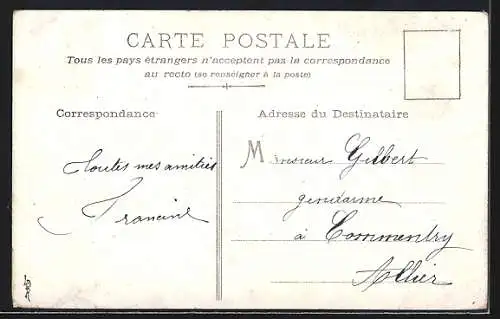 CARTE POSTALE
Tous les pays étrangers n'acceptent pas la correspondance
au recto (se renseigner à la poste)
Correspondance
Adresse du Destinataire
Toutes mes amitiés
Francine
Monsieur Gilbert
gendarme
à Commentry
Allier